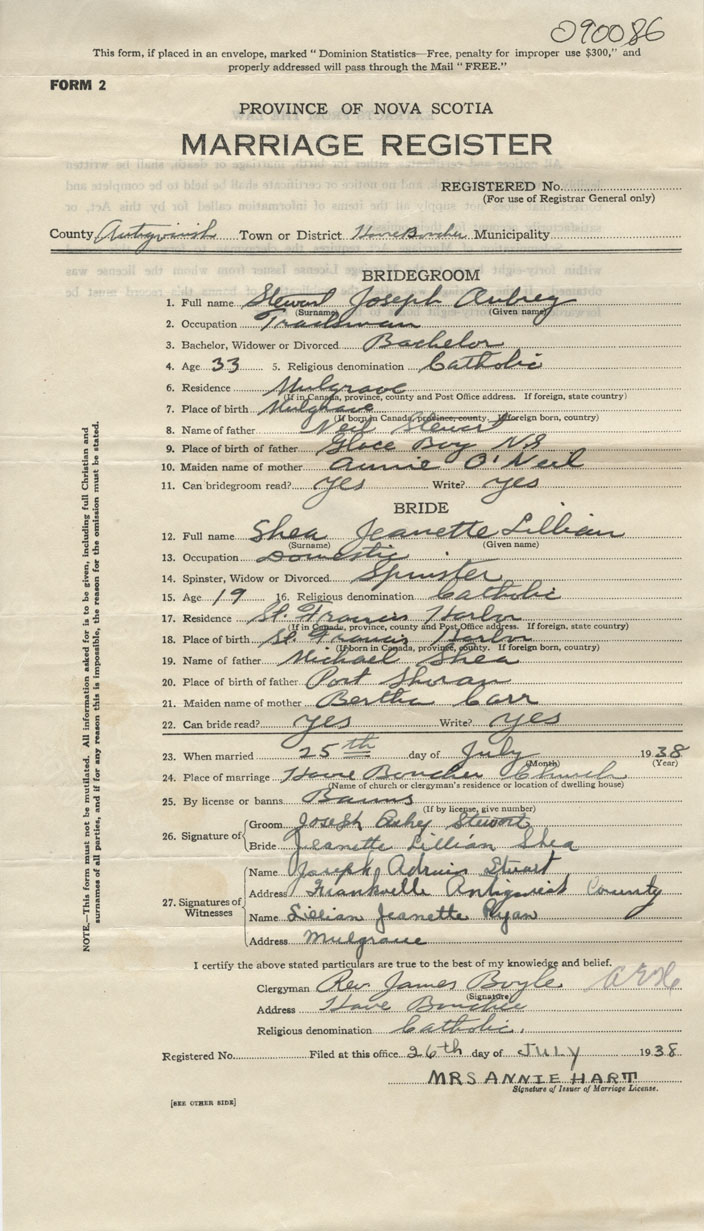 090086
This form, if placed in an envelope, marked "Dominion Statistics—Free, penalty for improper use $300," and
properly addressed will pass through the Mail "FREE."
FORM 2
PROVINCE OF NOVA SCOTIA
MARRIAGE REGISTER
REGISTERED No.
(For use of Registrar General only)
County Antigonish Town or District Havre Boucher Municipality
BRIDEGROOM
1. Full name Stewart Joseph Aubrey
(Surname) (Given name)
2. Occupation Trackman
3. Bachelor, Widower or Divorced Bachelor
4. Age 33 5. Religious denomination Catholic
6. Residence Mulgrave
(If in Canada, province, county and Post Office address. If foreign, state country)
7. Place of birth Mulgrave
(If born in Canada, province, county. If foreign born, country)
8. Name of father Neil Stewart
9. Place of birth of father Glace Bay N.S
10. Maiden name of mother Annie O'Neil
11. Can bridegroom read? yes Write? yes
BRIDE
12. Full name Shea Jeanette Lillian
(Surname) (Given name)
13. Occupation Domestic
14. Spinster, Widow or Divorced Spinster
15. Age 19 16. Religious denomination Catholic
17. Residence St. Francis Harbor
(If in Canada, province, county and Post Office address. If foreign, state country)
18. Place of birth St. Francis Harbor
(If born in Canada, province, county. If foreign born, country)
19. Name of father Michael Shea
20. Place of birth of father Port
21. Maiden name of mother Bertha Carr
22. Can bride read? yes Write? yes
23. When married 25th day of July 1938
(Month) (Year)
24. Place of marriage Havre Boucher Church
(Name of church or clergyman's residence or location of dwelling house)
25. By license or banns Banns
(If by license, give number)
26. Signature of
Groom Joseph Stewart
Bride Jeanette Lillian Shea
27. Signatures of Witnesses
Name Joseph Stuart
Address Frankville County
Name Lillian Jeanette Ryan
Address Mulgrave
I certify the above stated particulars are true to the best of my knowledge and belief.
Clergyman Rev. James Boyle
(Signature)
Address Havre
Religious denomination Catholic.
Registered No. Filed at this office 26th day of JULY 1938
MRS ANNIE HART
Signature of Issuer of Marriage License.
[SEE OTHER SIDE]
NOTE.—This form must not be mutilated. All information asked for is to be given, including full Christian and
surnames of all parties, and if for any reason this is impossible, the reason for the omission must be stated.